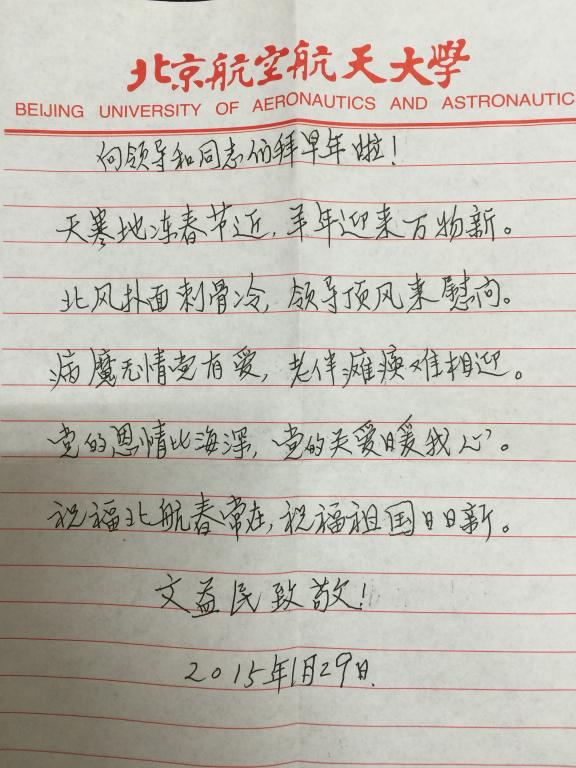 北京航空航天大學
BEIJING UNIVERSITY OF AERONAUTICS AND ASTRONAUTIC
向领导和同志们拜早年啦！
天寒地冻春节近，羊年迎来万物新。
北风扑面刺骨冷，领导顶风来慰问。
病魔无情党有爱，老伴瘫痪难相迎。
党的恩情比海深，党的关爱暖我心。
祝福北航春常在，祝福祖国日日新。
文益民致敬！
2015年1月29日.